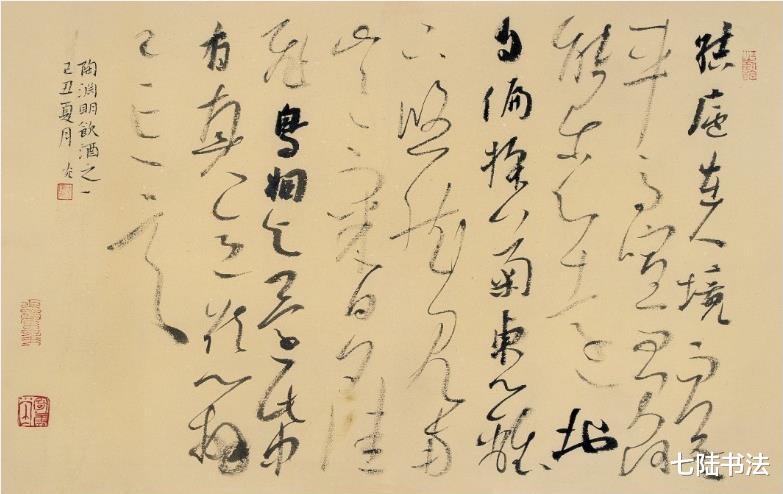 結廬在人境而無
車馬喧問君何
能尔心遠地
自偏採菊東籬
下悠然見南
山山氣日夕佳
飛鳥相與還此中
有真意欲辨
已忘言
陶淵明飲酒之一
己丑夏月
七陆书法